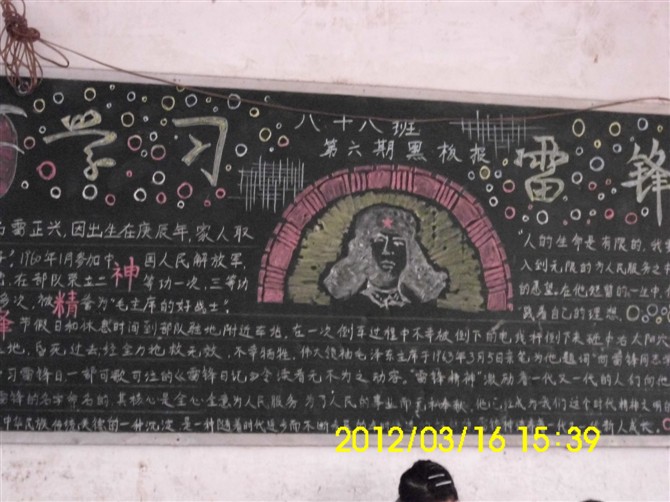 学习 雷锋
八十八班
第六期黑板报
雷正兴,因出生在庚辰年,家人取
1960年1月参加中国人民解放军
在部队荣立二等功一次,三等功
多次,被誉为"毛主席的好战士"
神
精
"人的生命是有限的,我
入到无限的为人民服务之
的愿望.在他短暂的一生中
践着自己的理想
节假日和休息时间到部队驻地附近车站,在一次倒车过程中不幸被倒下的电线杆倒下来砸中右太阳穴
地,昏死过去,经全力抢救无效,不幸牺牲.伟大领袖毛泽东主席于1963年3月5日亲笔为他题词"向雷锋同志
习雷锋日,一部可歌可泣的《雷锋日记》令读者无不为之动容."雷锋精神"激励着一代又一代的人们向
雷锋的名字命名的,其核心是全心全意为人民服务,为了人民的事业而无私奉献,他已经成为我们这个时代精神文明
中华民族传统美德的一种沉淀,是一种随着时代进步而不断
新人成长
2012/03/16 15:39